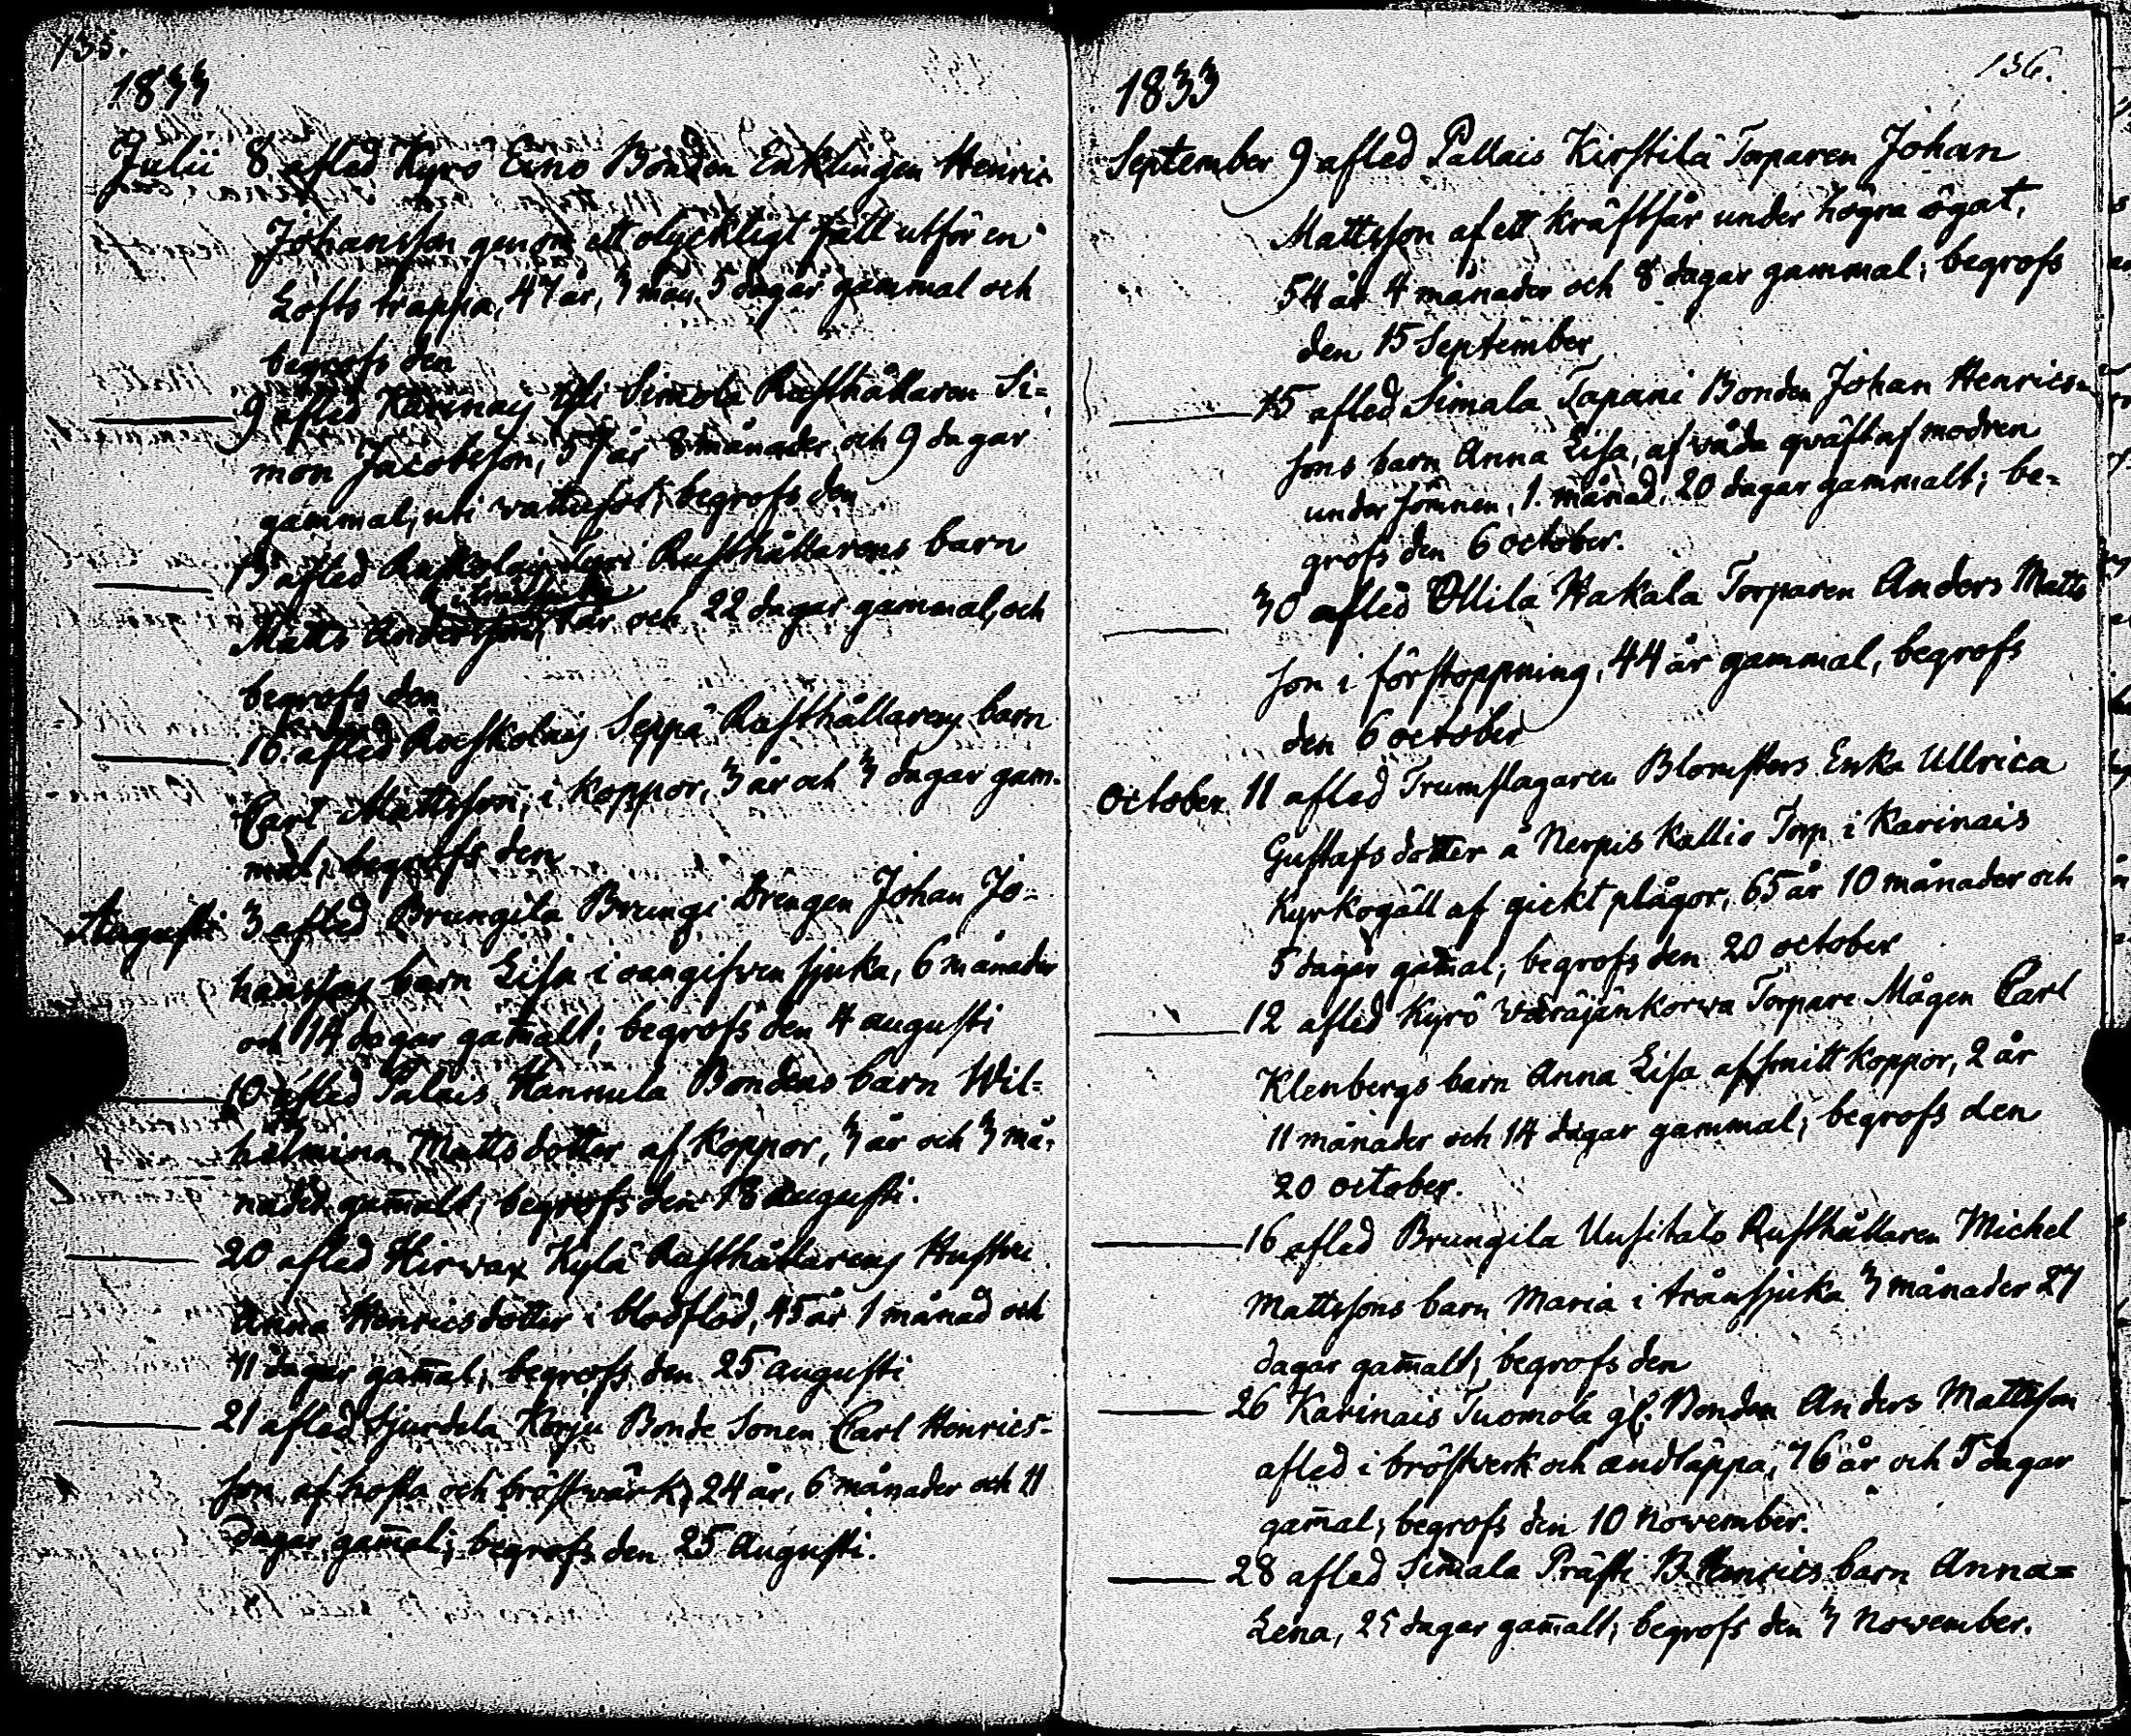 135.
1833
Julii 8 afled Kyrö Eino Bonden Enklingen Henric
Johansson genom ett olyckligt fall utför en
Lofts trappa, 47 år, 3 mån. 5 dagar gammal och
begrofs den
9 afled Karinais Simola Rusthållaren Si=
mon Jacobsson, 57 år 8 månader och 9 dagar
gammal, uti vattusot; begrofs den
13 afled Rusthållarens barn
Matts Andersson, 1 år och 22 dagar gammal, och
begrofs den
16 afled Seppä Rusthållarens barn
Carl Mattsson, i koppor, 3 år och 3 dagar gam-
mal; begrofs den
Augusti 3 afled Brungila Brungi Drengen Johan Jo=
hanssons barn Lisa i oangifven sjuka, 6 månader
och 14 dagar gam̄alt; begrofs den 4 augusti
10 afled Palais Hannula Bondens barn Wil=
helmina Mattsdotter af koppor, 3 år och 3 må=
nader gam̄alt; begrofs den 18 Augusti.
20 afled Hirwax Kylä Rusthållarens Hustru
Anna Henricsdotter i blodflöd, 45 år 1 månad och
11 dagar gam̄al; begrofs den 25 augusti
21 afled Sjurdela Korju Bonde Sonen Carl Henrics=
son af hosta och bröstvärk, 24 år, 6 månader och 11
dagar gam̄al; begrofs den 25 Augusti.
136.
1833
September 9 afled Pallais Kirstilä Torparen Johan
Mattsson af ett kräftsår under högra ögat,
54 år 4 månader och 8 dagar gammal; begrofs
den 15 September
15 afled Simala Tapani Bonden Johan Henrics=
sons barn Anna Lisa, af våda qväft af modren
under sömnen, 1. månad. 20 dagar gammalt; be=
grofs den 6 october.
30 afled Ollila Hakala Torparen Anders Matts
son i förstoppning, 44 år gammal, begrofs
den 6 october
October 11 afled Trumslagaren Blomsters Enka Ullrica
Gustafsdotter å Nerpis Kallio Torp i Karinais
Kyrkogäll af gickt plågor, 65 år 10 månader och
5 dagar gam̄al; begrofs den 20 october
12 afled Kyrö Väräjänkorwa Torpare Mågen Carl
Klenbergs barn Anna Lisa af smittkoppor, 2 år
11 månader och 14 dagar gammal; begrofs den
20 october.
16 afled Brungila Uusitalo Rusthållaren Michel
Mattssons barn Maria i trånsjuka 3 månader 27
dagar gam̄alt; begrofs den
26 Karinais Tuomola gl. Bonden Anders Mattsson
afled i bröstverk och andtäppa, 76 år och 5 dagar
gam̄al; begrofs den 10 November.
28 afled Simala Prästi B. Henrics barn Anna=
Lena, 25 dagar gam̄alt; begrofs den 3 November.